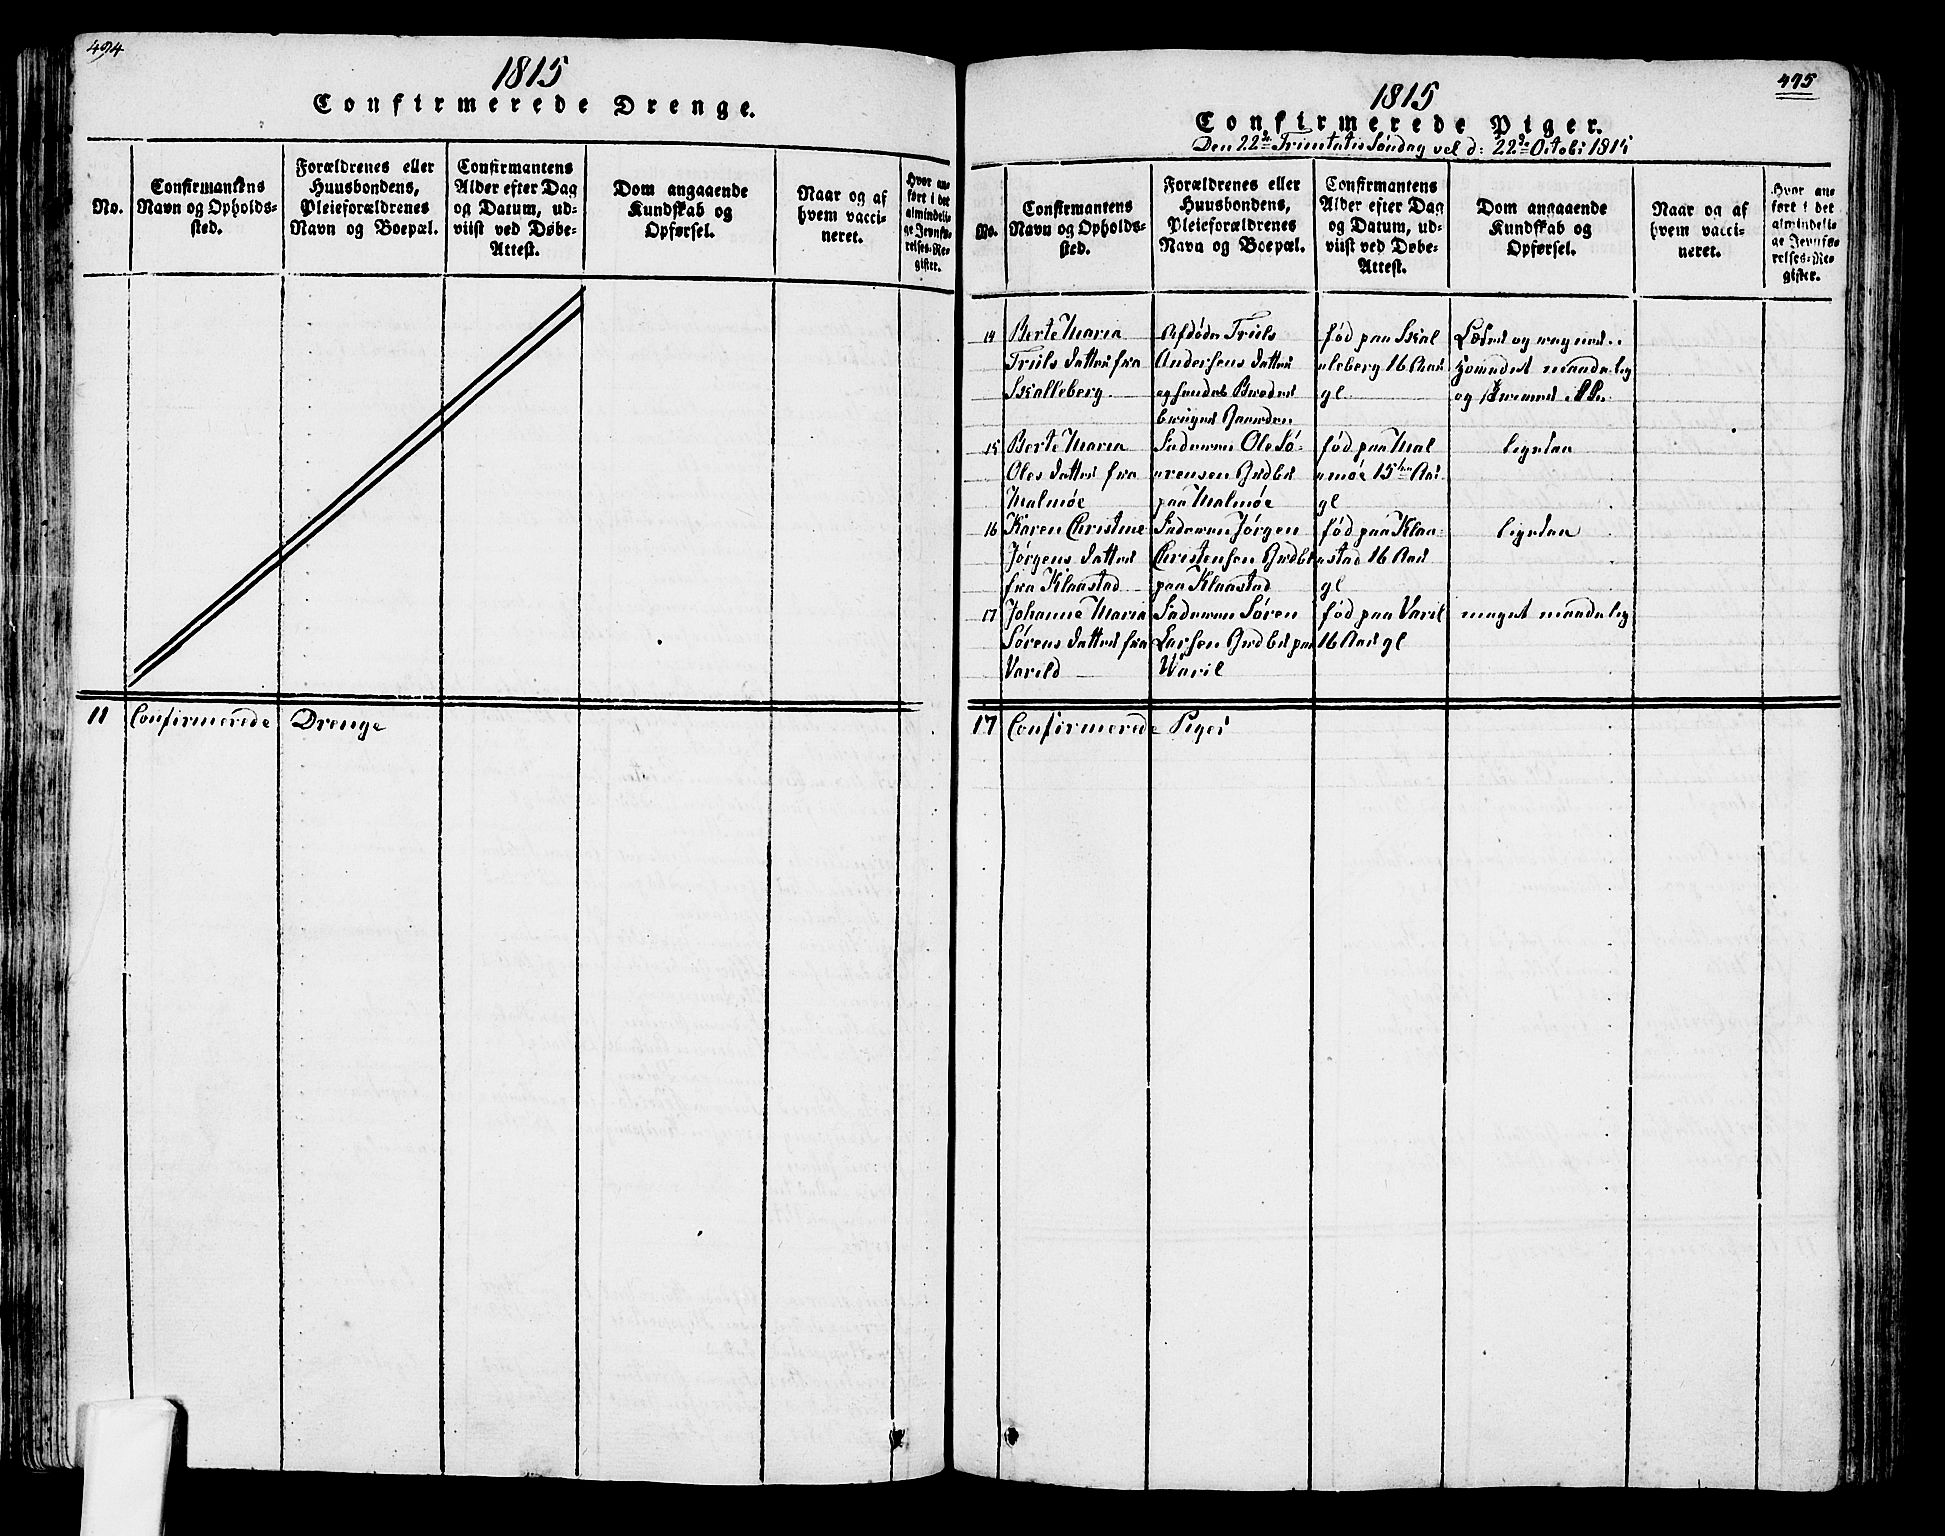 494
1815
Confirmerede Drenge.
No.
Confirmantens
Navn og Opholds-
sted.
Forældrenes eller
Huusbondens,
Pleieforældrenes
Navn og Boepæl.
Confirmantens
Alder efter Dag
og Datum, ud-
viist ved Døbe-
Attest.
Dom angaaende
Kundskab og
Opførsel.
Naar og af
hvem vacci-
neret.
Hvor an-
ført i det
almindeli-
ge Jevnfø-
relses-Re-
gister.
11 Confirmerede Drenge
475
1815
Confirmerede Piger.
Den 22de Trinitatis Søndag vel d: 22de Octobr 1815
No.
Confirmantens
Navn og Opholds-
sted.
Forældrenes eller
Huusbondens,
Pleieforældrenes
Navn og Boepæl.
Confirmantens
Alder efter Dag
og Datum, ud-
viist ved Døbe-
Attest.
Dom angaaende
Kundskab og
Opførsel.
Naar og af
hvem vacci-
neret.
Hvor an-
ført i det
almindeli-
ge Jevnfø-
relses-Re-
gister.
14
Berte Maria
Truls datter fra
Skalleberg
Afdøde Truls
Andersens datter
og hendes
fød paa Skal
leberg 16 Aar
gl
og
maadelig
og
15
Berte Maria
Oles datter fra
Malmøe
Faderen Ole Sø-
rensen
paa Malmøe
fød paa Mal
møe 15 Aar
gl
ligedan
16
Karen Christine
Jørgens datter
fra Klaastad
Faderen Jørgen
Christensen
paa Klaastad
fød paa Klaa
stad 16 Aar
gl
ligedan
17
Johanne Maria
Sørens datter fra
Varild
Faderen Søren
Larsen paa
Waril
fød paa Varil
16 Aar gl
meget maadelig
17 Confirmerede Piger